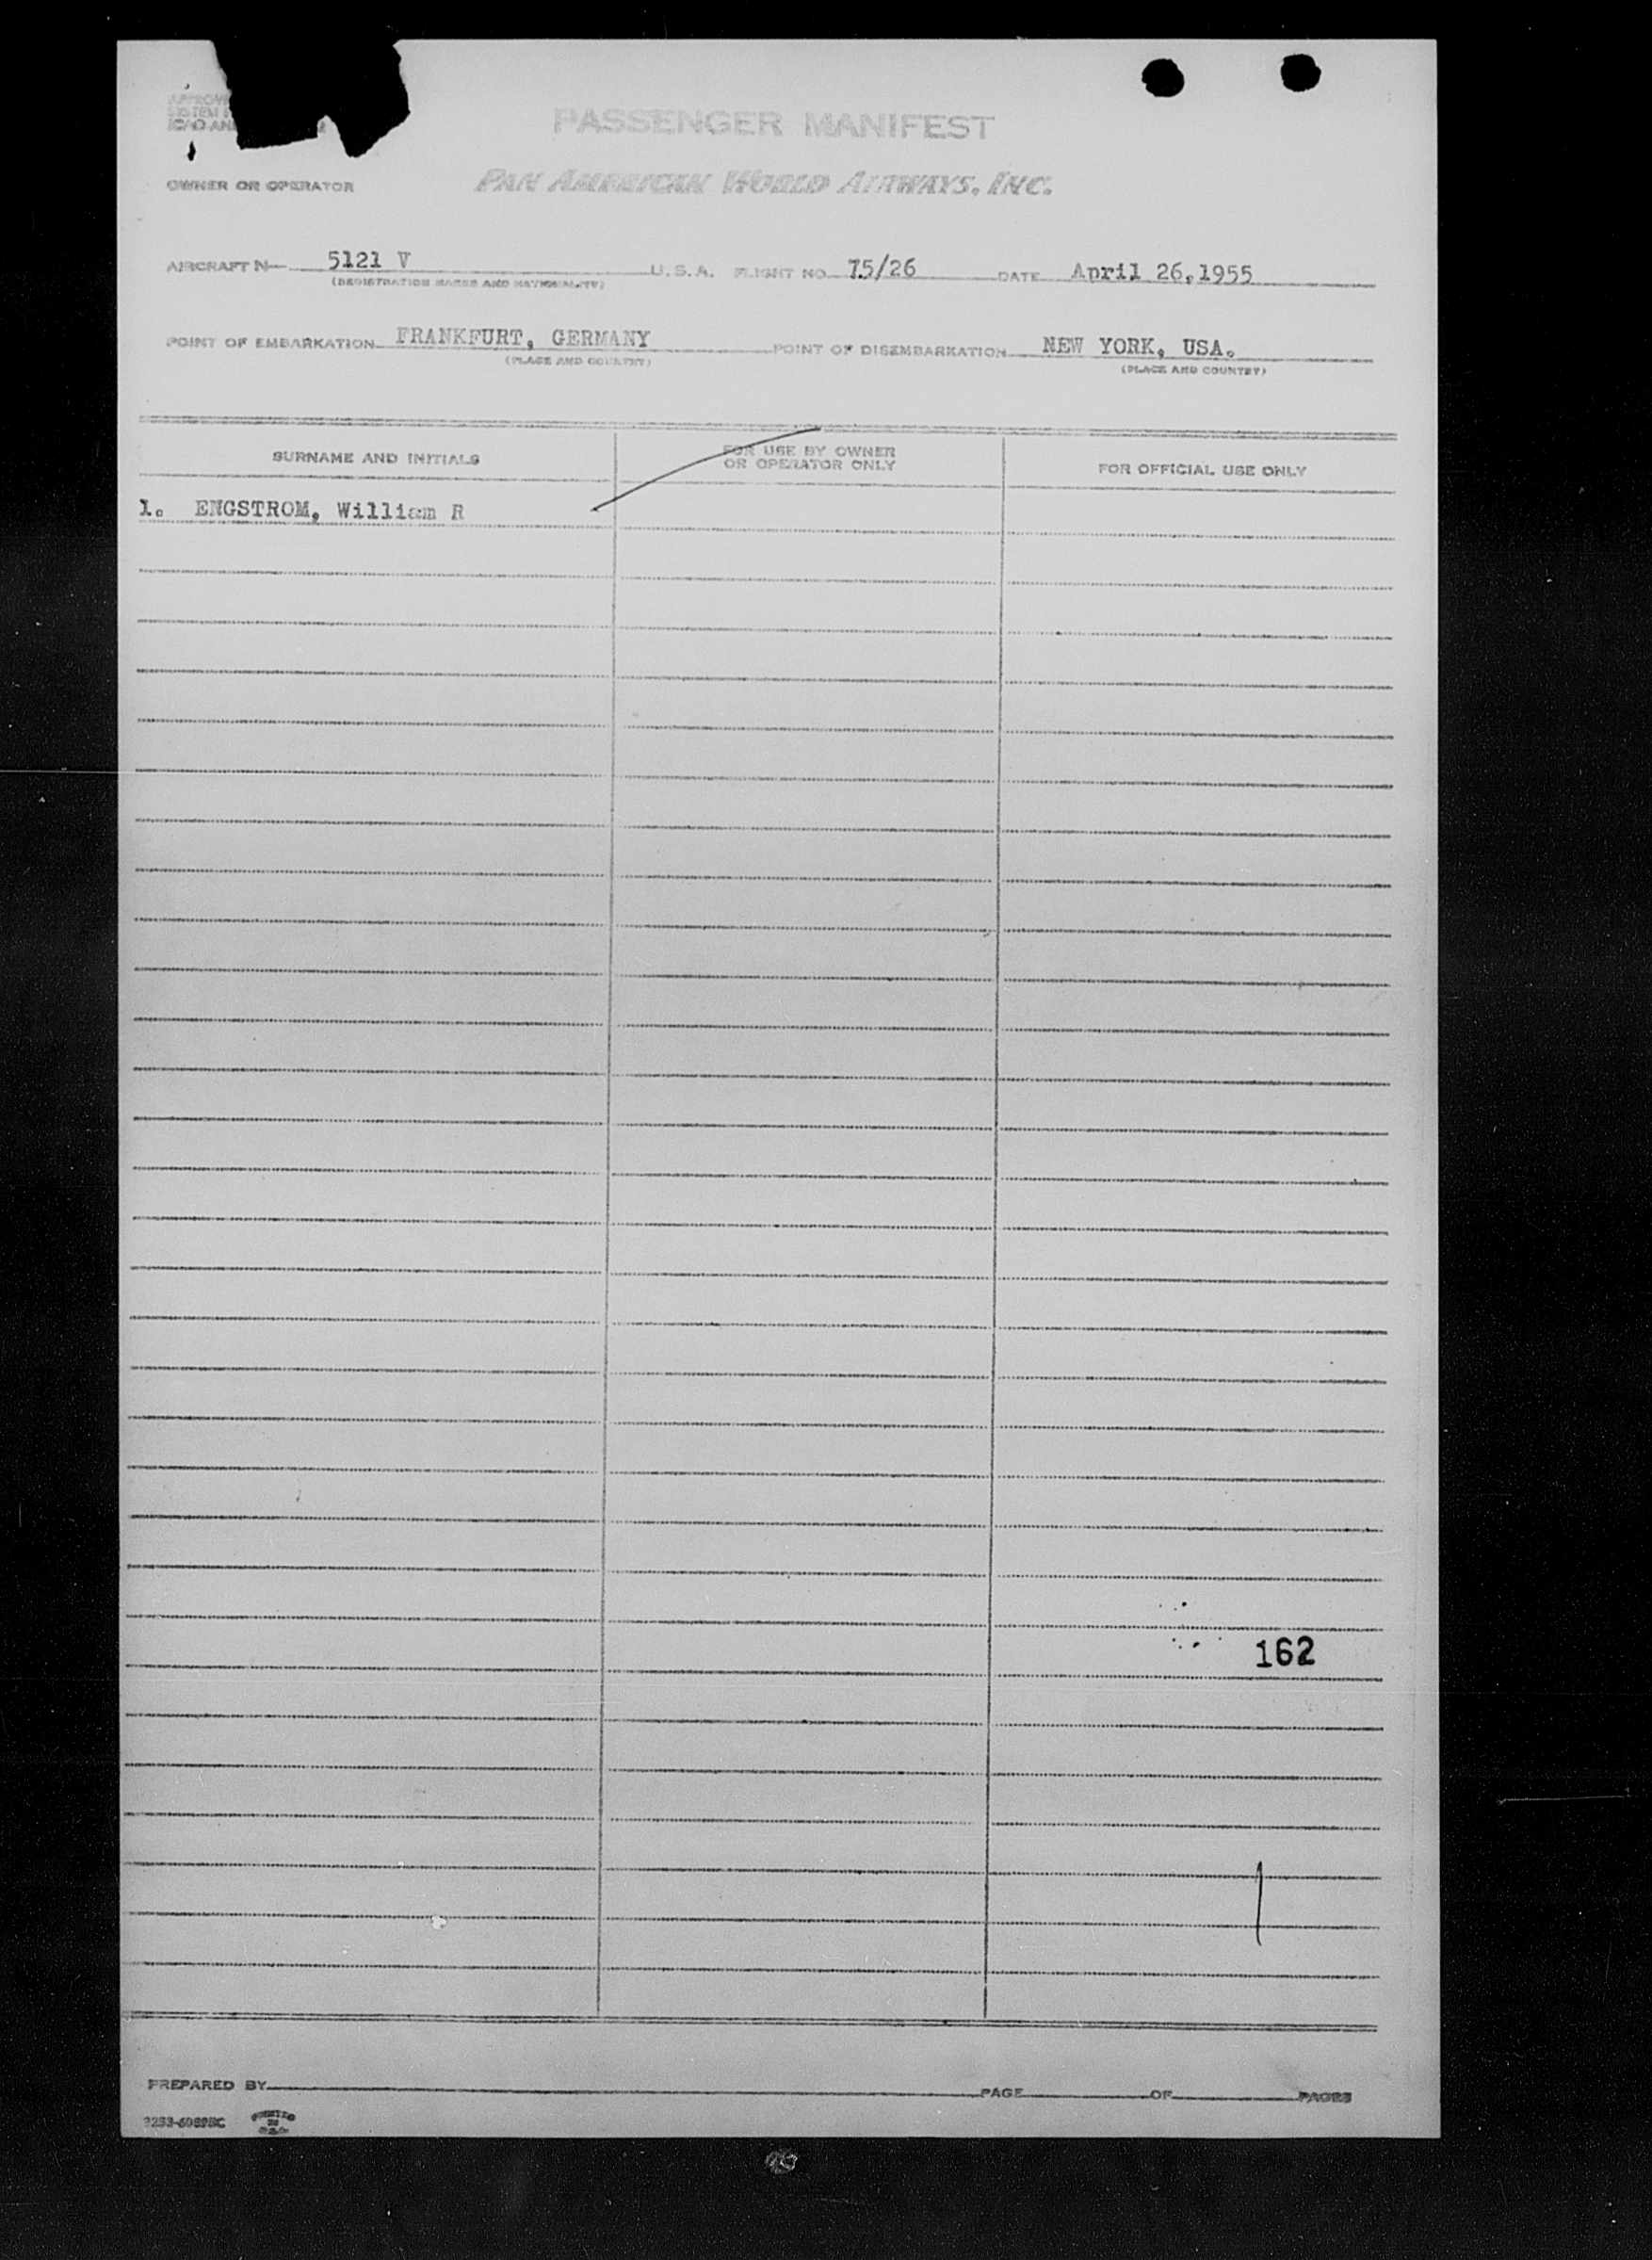 PASSENGER MANIFEST
OWNER OR OPERATOR PAN AMERICAN WORLD AIRWAYS, INC.
AIRCRAFT N— 5121 V U.S.A. FLIGHT NO. 75/26 DATE April 26,1955
(REGISTRATION MARKS AND NATIONALITY)
POINT OF EMBARKATION FRANKFURT, GERMANY POINT OF DISEMBARKATION NEW YORK, USA.
(PLACE AND COUNTRY) (PLACE AND COUNTRY)
SURNAME AND INITIALS FOR USE BY OWNER OR OPERATOR ONLY FOR OFFICIAL USE ONLY
1. ENGSTROM, William R
162
PREPARED BY PAGE OF PAGES
PRINTED IN U.S.A.